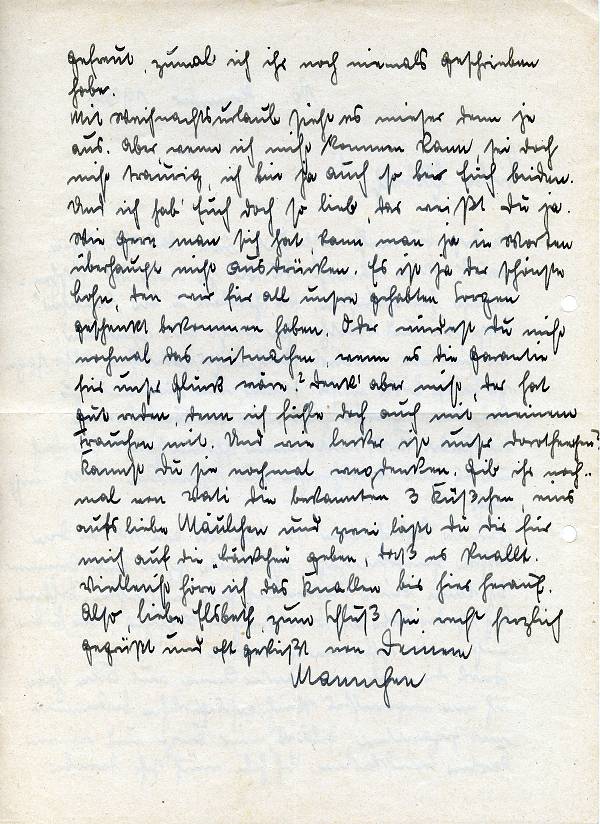 gefreut, zumal ich ihr noch niemals geschrieben
habe.
Mit Weihnachtsurlaub sieht es mieser denn je
aus. Aber wenn ich nicht kommen kann, sei doch
nicht traurig, ich bin ja auch so bei Euch beiden.
Und ich hab' Euch doch so lieb, das weißt Du ja.
Wie gern man sich hat, kann man ja in Worten
überhaupt nicht ausdrücken. Es ist ja der schönste
Lohn, den wir für all unsre gehabten Sorgen
geschenkt bekommen haben. Oder würdest Du nicht
nochmal das mitmachen, wenn es die Garantie
für unser Glück wäre? Denk' aber nicht, der hat
gut reden, denn ich fühle doch auch mit meinem
Frauchen mit. Und wie lecker ist unser Dorotheechen?
Kannst Du sie nochmal wegdenken. Gib ihr noch-
mal von Vati die bekannten 3 Küßchen, eins
aufs liebe Mäulchen und zwei läßt Du Dir für
mich auf die Bäckchen geben, daß es knallt.
Vielleicht höre ich das Knallen bis hier herauf.
Also, liebe Elsbeth, zum Schluß sei recht herzlich
gegrüßt und oft geküßt von Deinem
Mannchen